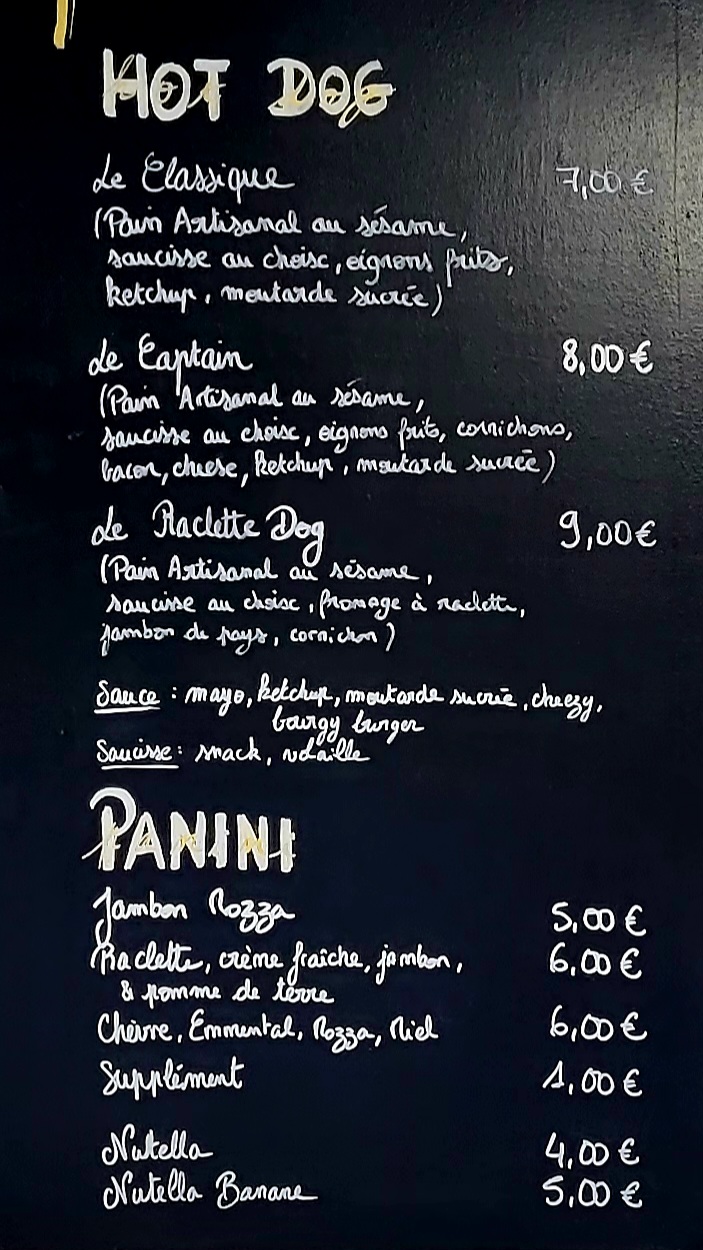 HOT DOG
Le Classique 7,00 €
(Pain Artisanal au sésame,
saucisse au choisc, oignons frits,
ketchup, moutarde sucrée)
Le Captain 8,00 €
(Pain Artisanal au sésame,
saucisse au choisc, oignons frits, cornichons,
bacon, cheese, ketchup, moutarde sucrée)
Le Raclette Dog 9,00 €
(Pain Artisanal au sésame,
saucisse au choisc, fromage à raclette,
jambon de pays, cornichon)
Sauce : mayo, ketchup, moutarde sucrée, cheezy,
bourgy burger
Saucisse : snack, volaille
PANINI
Jambon Mozza 5,00 €
Raclette, crème fraîche, jambon, 6,00 €
& pomme de terre
Chèvre, Emmental, Mozza, Miel 6,00 €
Supplément 1,00 €
Nutella 4,00 €
Nutella Banane 5,00 €